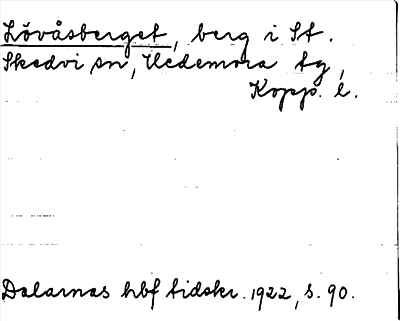 Lövåsberget, berg i St.
Skedvi sn, Hedemora tg,
Kopp. l.
Dalarnas hbf tidskr. 1922, s. 90.